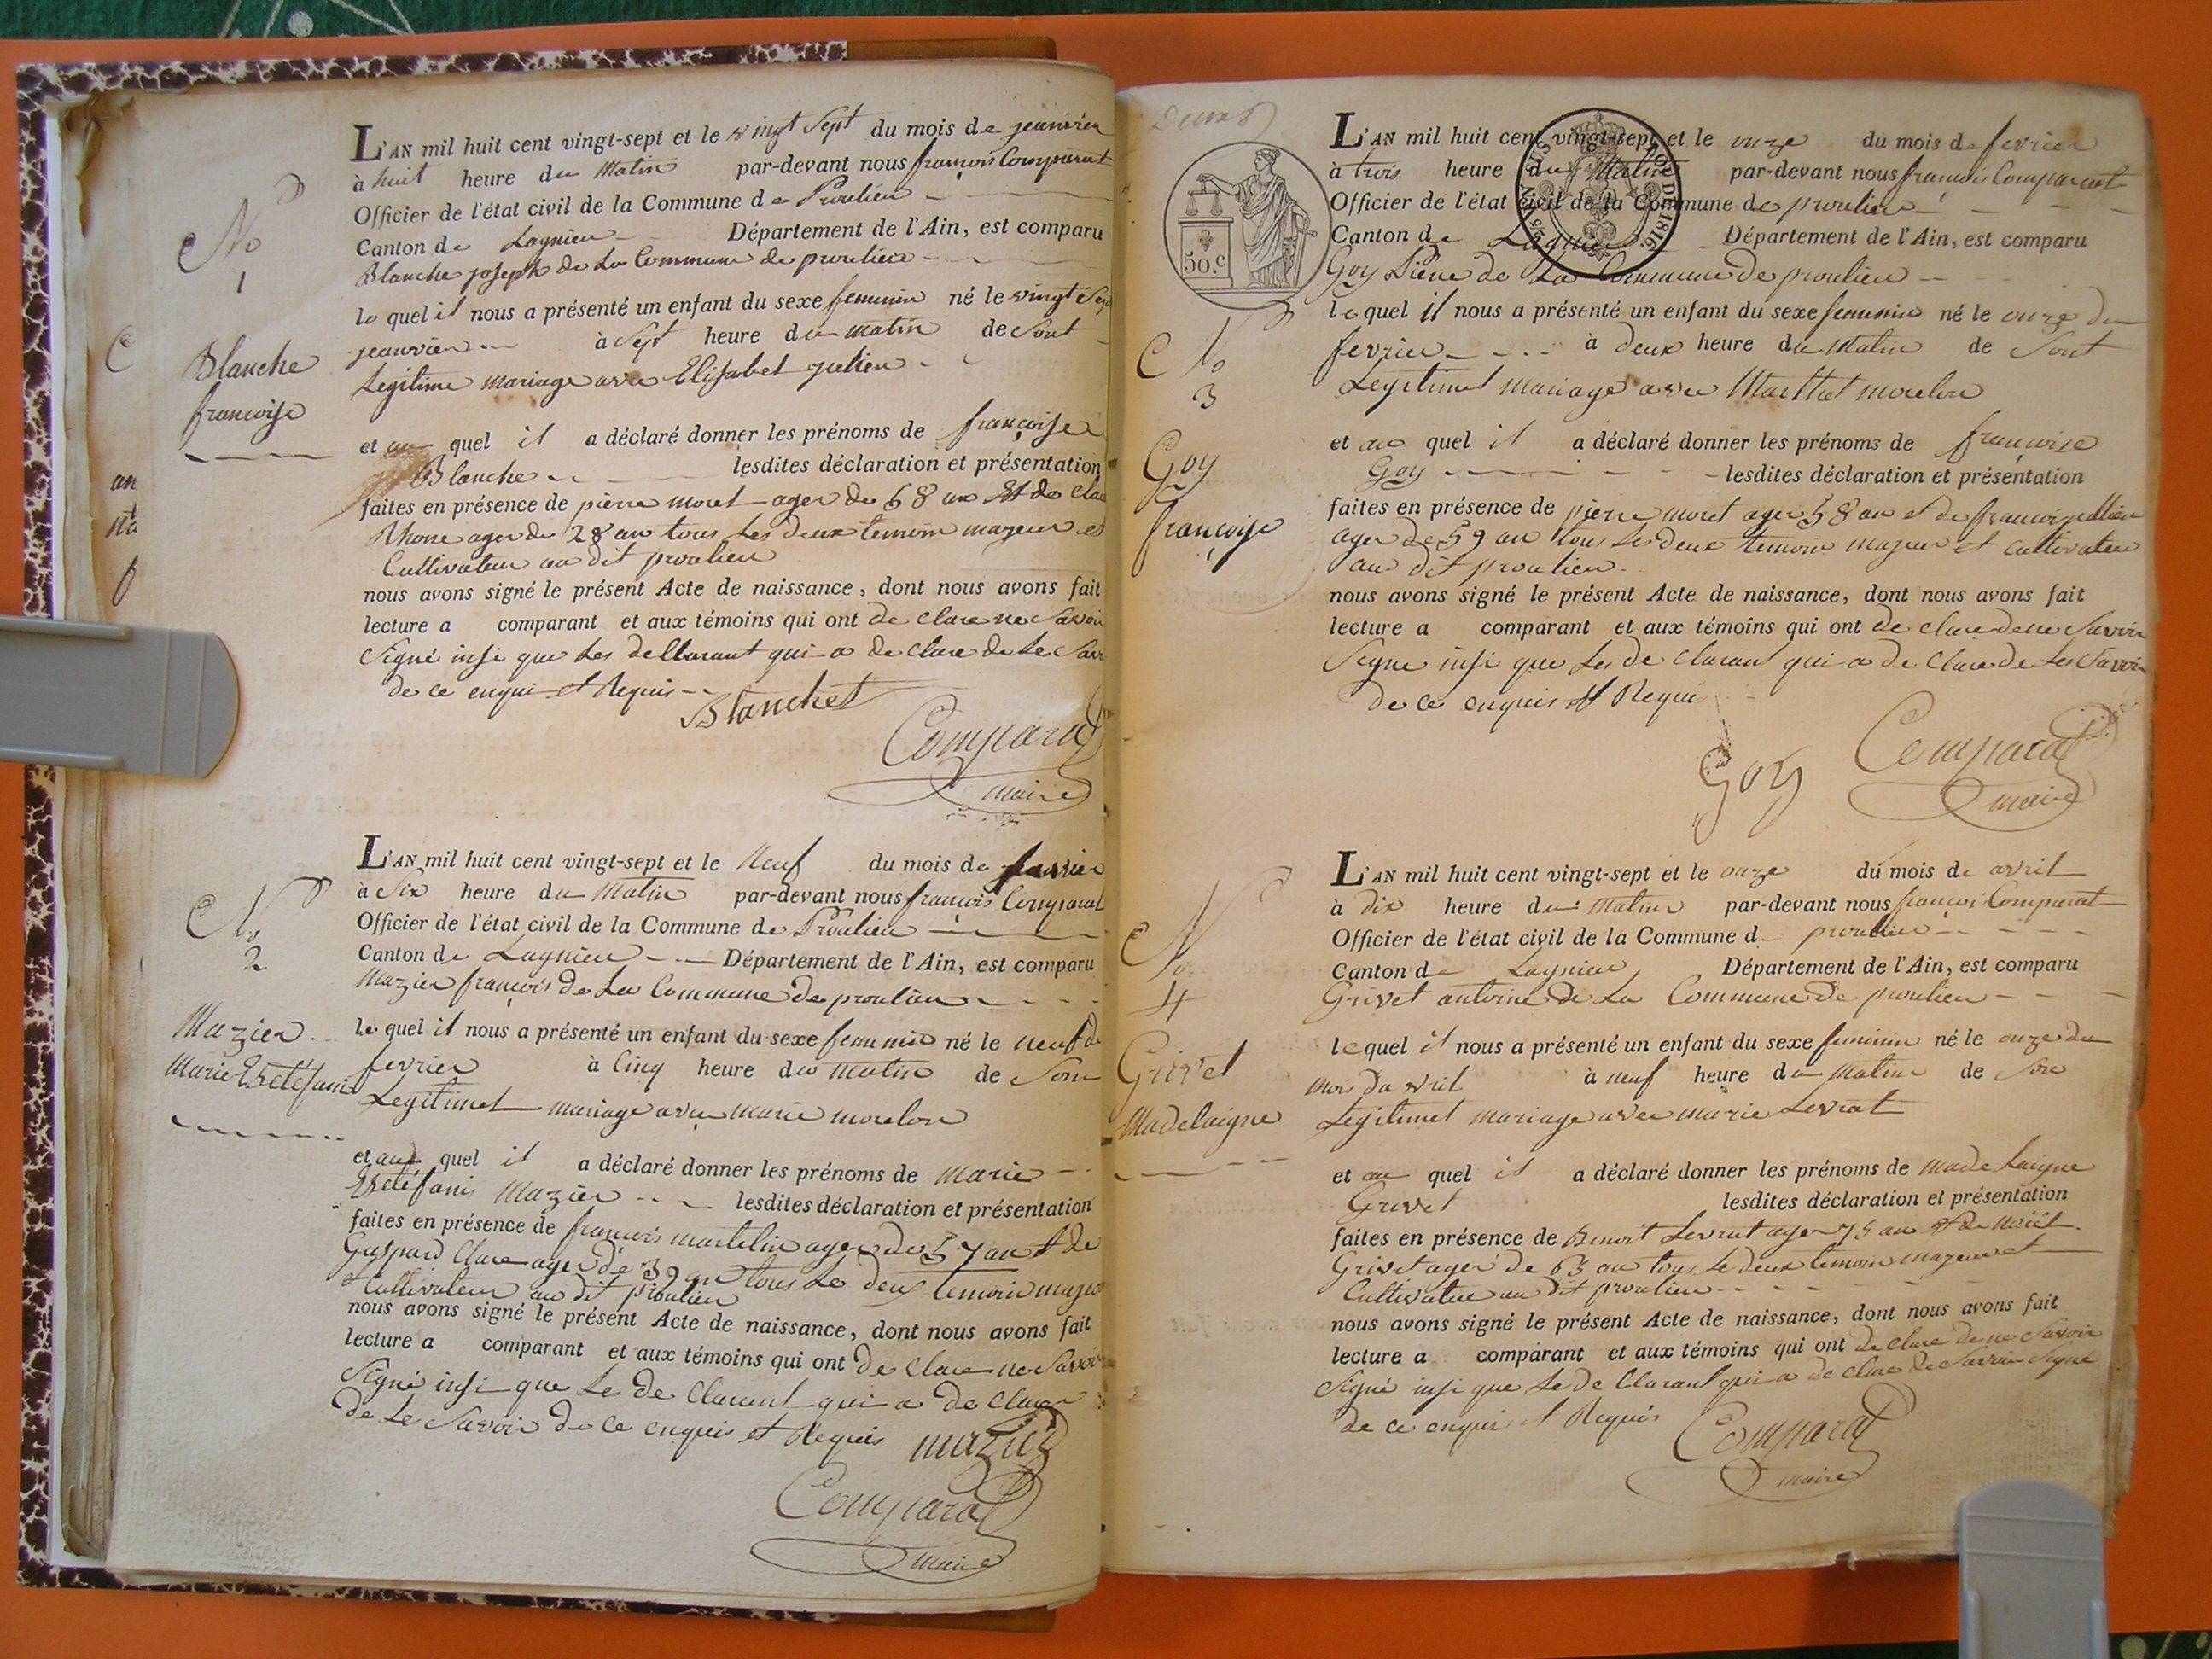 No
1
Blanche
françoise
L'AN mil huit cent vingt-sept et le vingt sept du mois de jeanvier
à huit heure du Matin par-devant nous françois Comparat
Officier de l'état civil de la Commune de Proulieu
Canton de Lagnieu Département de l'Ain, est comparu
Blanche joseph de La Commune de proulieu
le quel il nous a présenté un enfant du sexe feminin né le vingt Sep
jeanvier à Sept heure du matin de Sont
Legitime mariage avec Elisabet
et au quel il a déclaré donner les prénoms de françoise
Blanche lesdites déclaration et présentation
faites en présence de pierre moret ager de 68 an Et de Clau
Rhone ager de 28 an tous Les deux temoin mazeur et
Cultivateur au dit proulieu
nous avons signé le présent Acte de naissance, dont nous avons fait
lecture a comparant et aux témoins qui ont de clare ne Savoir
Signé insi que Les dellarant qui a de clare de Le Savo
de ce enqui et Requis
Blanchet
Comparat
maire
No
2
Mazier
Marie Estefani
L'AN mil huit cent vingt-sept et le Neuf du mois de fevrier
à Six heure du Matin par-devant nous françois Comparat
Officier de l'état civil de la Commune de Proulieu
Canton de Lagnieu Département de l'Ain, est comparu
Mazier françois de La Commune de proulieu
le quel il nous a présenté un enfant du sexe feminin né le neuf du
fevrier à Cinq heure du matin de Son
Legitimet mariage avec marie morelon
et au quel il a déclaré donner les prénoms de marie
Estefanis Mazier lesdites déclaration et présentation
faites en présence de francois martelin ager de 57 an et de
Gaspard Clare ager de 39 an tous Le deux temoin mazeu
et Cultivateur au dit proulieu
nous avons signé le présent Acte de naissance, dont nous avons fait
lecture a comparant et aux témoins qui ont de clare ne Savoir
Signé insi que Le de Clarant qui a de Clarer
de Le Savoir de ce enquis et Requis
mazier
Comparat
maire
50.C
LOI DE 1816.
No
3
Goy
françoise
L'AN mil huit cent vingt-sept et le onze du mois de fevrier
à trois heure du Matin par-devant nous francois Comparat
Officier de l'état civil de la Commune de proulieu
Canton de Lagnieu Département de l'Ain, est comparu
Goy Pierre de La Commune de proulieu
le quel il nous a présenté un enfant du sexe feminin né le onze du
fevrier à deux heure du Matin de Sont
Legitimet mariage avec Marthet morelon
et au quel il a déclaré donner les prénoms de françoise
Goy lesdites déclaration et présentation
faites en présence de pierre moret ager 58 an et de francoi
ager de 59 an tous Les deux temoin mazeur et cultivateur
au dit proulieu
nous avons signé le présent Acte de naissance, dont nous avons fait
lecture a comparant et aux témoins qui ont de clare de ne Savoir
Signe insi que Les de claran qui a de Clare de Les Savoir
de ce enquis et Requi
Goy
Comparat
maire
No
4
Grivet
Madelaigne
L'AN mil huit cent vingt-sept et le onze du mois de avril
à dix heure du Matin par-devant nous françoi Comparat
Officier de l'état civil de la Commune d proulieu
Canton de Lagnieu Département de l'Ain, est comparu
Grivet antoine de La Commune de proulieu
le quel il nous a présenté un enfant du sexe feminin né le onze du
mois da vril à neuf heure du matin de Son
Legitimet mariage avec marie Levrat
et au quel il a déclaré donner les prénoms de madelaigne
Grivet lesdites déclaration et présentation
faites en présence de Benoit Levrat ager 75 an et de
Grivet ager de 63 an tous Le deux temoin mazeur et
Cultivateur au dit proulieu
nous avons signé le présent Acte de naissance, dont nous avons fait
lecture a comparant et aux témoins qui ont de clare de ne Savoir
Signé insi que Le de Clarant qui a de clare de Savoir Signé
de ce enquis et Requis
Comparat
maire